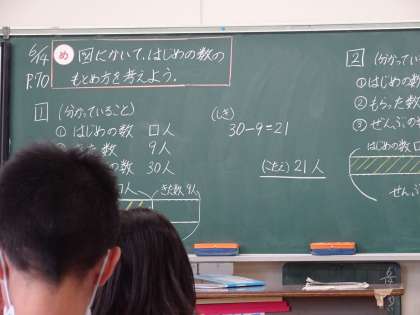 6/14
P.70
め 図にかいて、はじめの数の
もとめ方を考えよう。
1 (分かっていること)
① はじめの数 □人
きた数 9人
の数 30人
きた数 9人
(しき)
30-9=21
(こたえ) 21人
2 (分かってい
① はじめの数
② もらった数
③ ぜんぶの
はじめの数
ぜんぶ
6/14